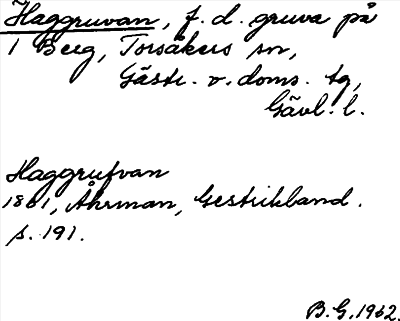 Haggruvan, f. d. gruva på
1 Berg, Torsåkers sn,
Gästr. v. doms. tg,
Gävl. l.
Haggrufvan
1861, Åhrman, Gestrikland.
s. 191.
B.G. 1962.